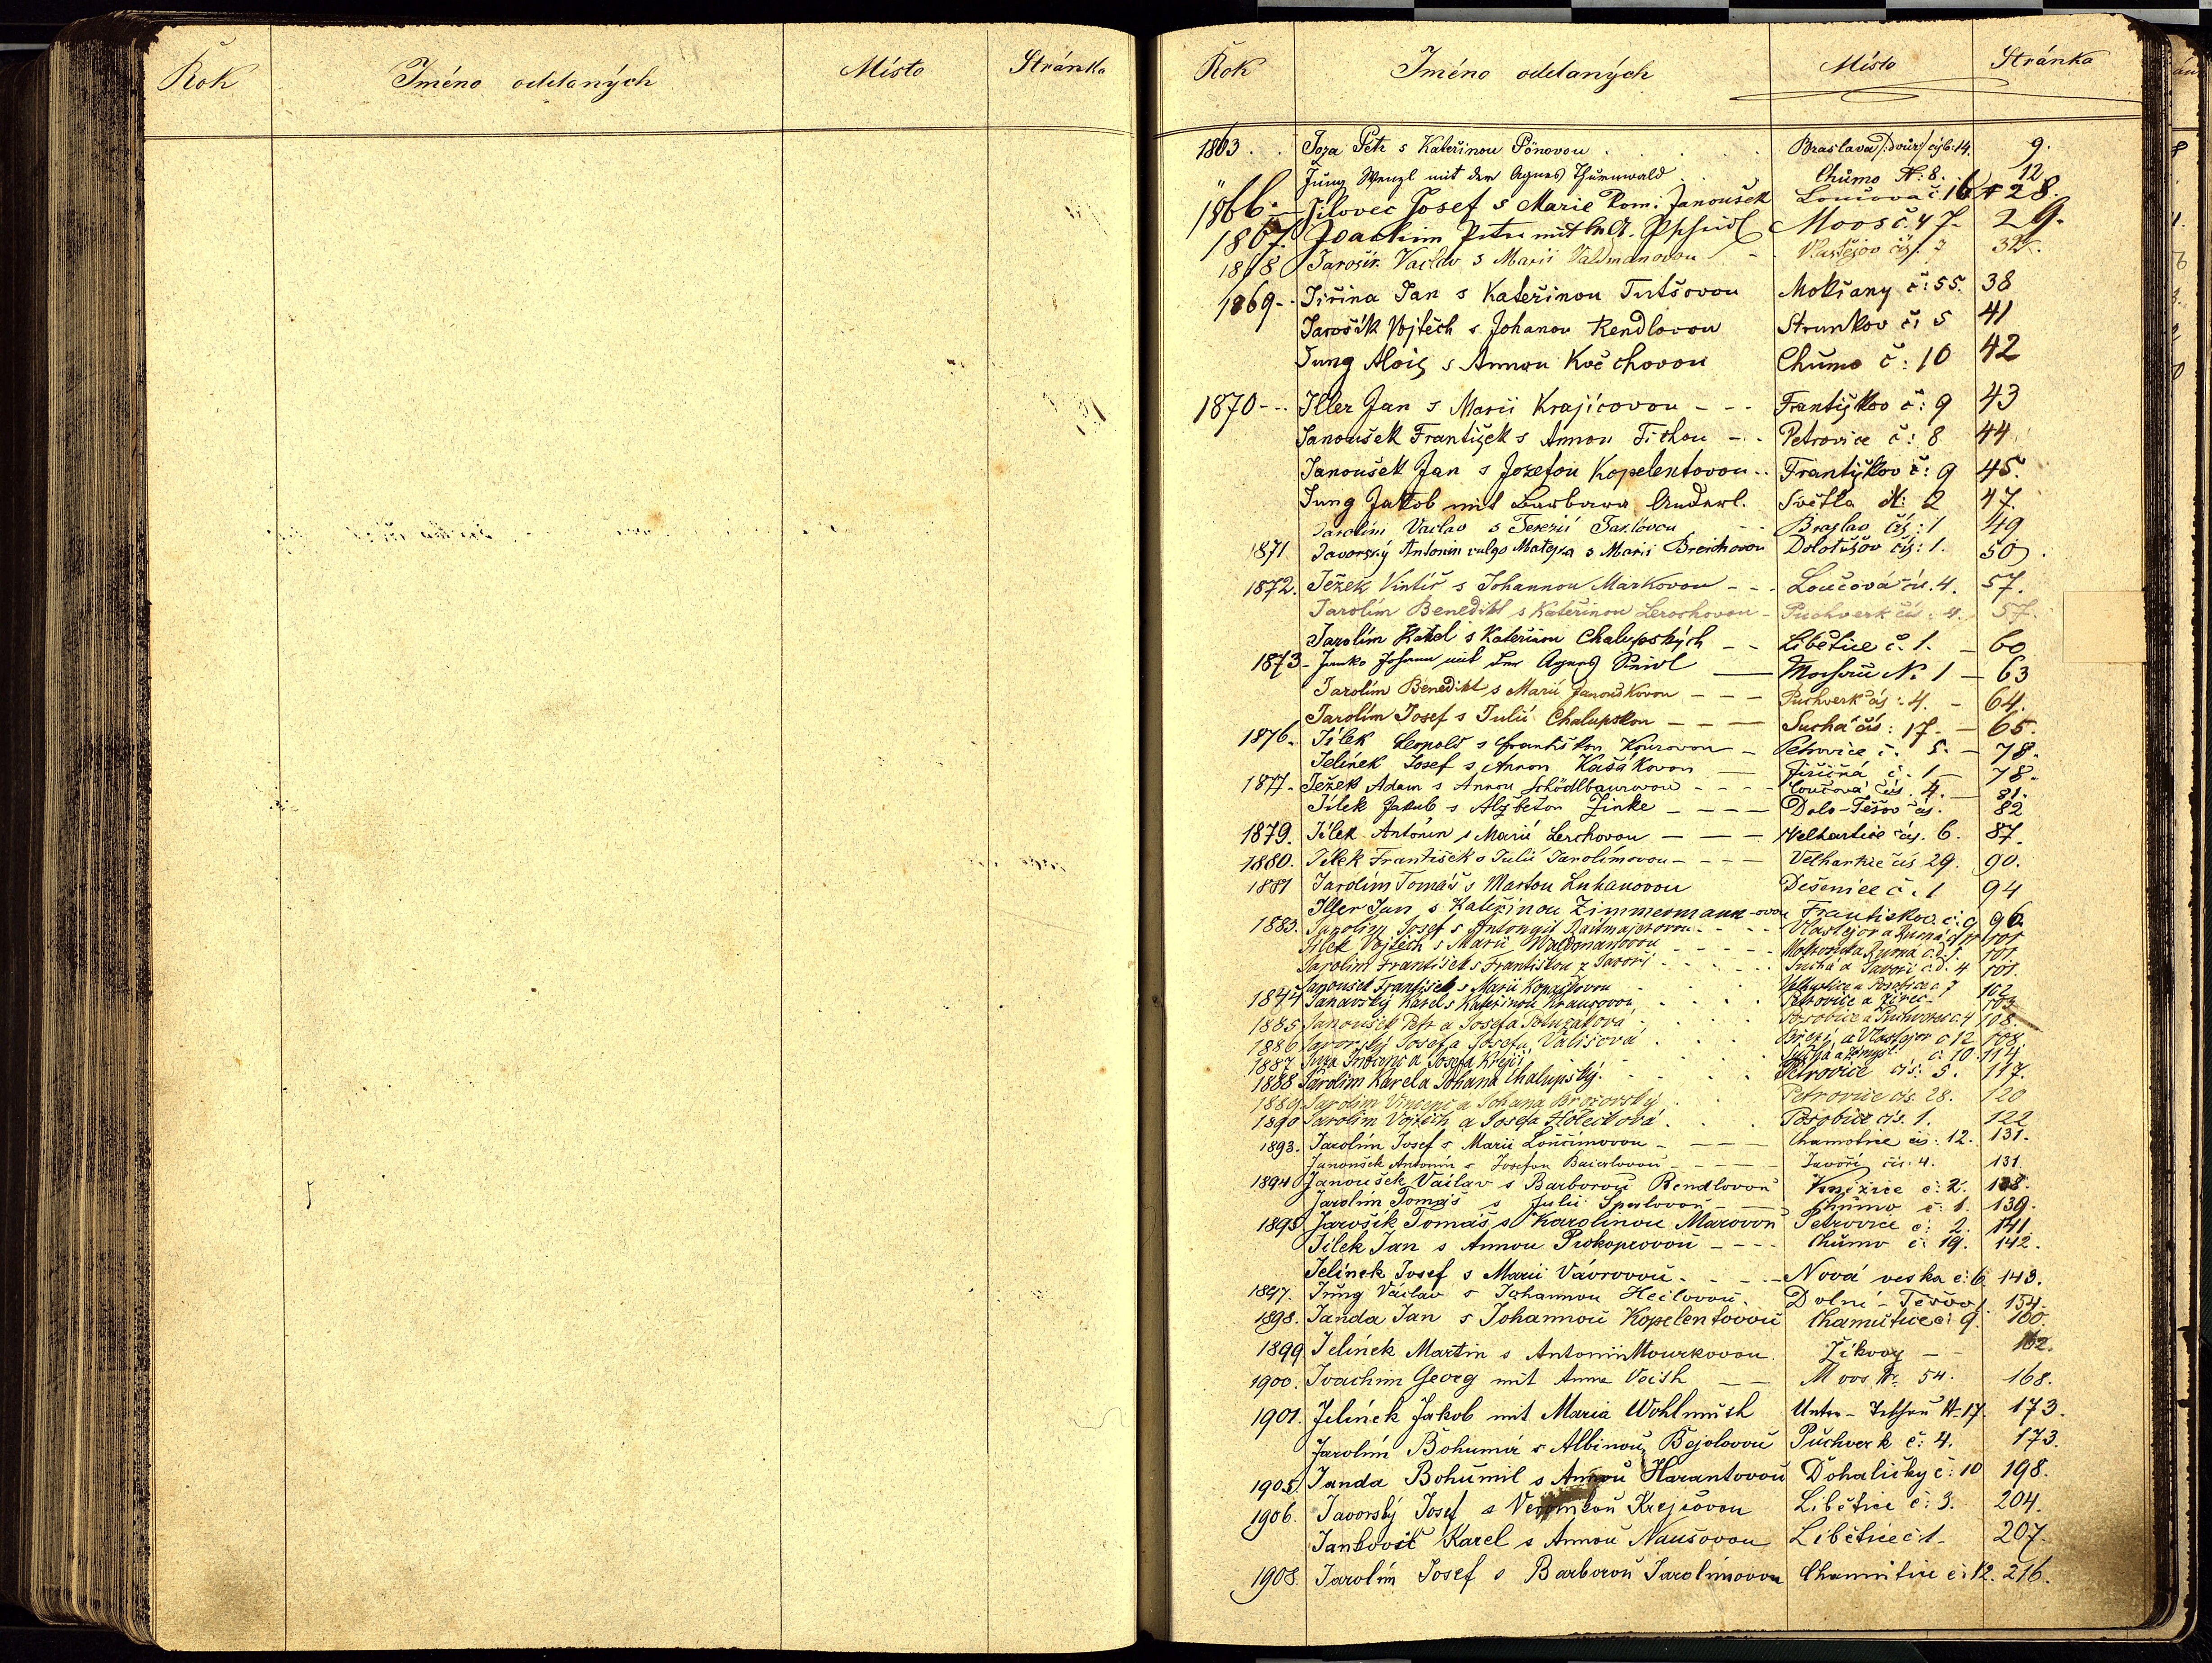 Rok Jméno oddaných Místo Stránka
Rok Jméno oddaných Místo Stránka
1863. Joza Petr s Kateřinou Pönovou Braslava /:dvůr:/ čís. 14. 9.
" Jung Wenzl mit der Agnes Thurnwald Chůmo N: 8. 12
1866. Jílovec Josef s Marie Rom. Janoušek Loučova č: 16 28.
1867. Joachim Peter mit Moos č. 47. 29.
1868 Jarošík Vaclav s Marií Valdmanovou Vlastějov čís. 32.
1869 Jiřina Jan s Kateřinou Tutšovou Mokřany č: 55. 38
Jarošík Vojtěch s Johanou Rendlovou Strunkov č: 5 41
Jung Alois s Annou Kočchovou Chůmo č: 10 42
1870 Iller Jan s Marií Krajícovou Františkov č: 9 43
Janoušek František s Annou Tichou Petrovice č: 8 44
Janoušek Jan s Jozefou Kopelentovou Františkov č: 9 45.
Jung Jakob mit Barbara Anderl. Světla N: 2 47.
Jarolím Vaclav s Terezií Braslav čís: 1 49
1871. Javorský Antonín vulgo Matejza s Marií Breichovou Dolotěšov čís: 1. 50.
1872. Ježek Vintíř s Johannou Markovou Loučová čís. 4. 57.
Jarolím Benedikt s Kateřinou Lerochovou Puchverk čís. 4. 57.
Jarolím Karel s Kateřinou Chalupských Libětice č. 1. 60
1873 Janko Johann mit der Agnes Seidl N. 1 63
Jarolím Benedikt s Marií Janouškovou Puchverk čís: 4. 64.
Jarolím Josef s Julií Chalupskou Suchá čís: 17. 65.
1876. Jílek Leopold s Františkou Kourovou Petrovice č. 5. 78.
Jelínek Josef s Annou Kašákovou Jiřičná č. 1 78.
1877. Ježek Adam s Annou Schödlbaurovou Loučová čís. 4. 81.
Jílek Jakub s Alžbětou Zinke Dolo-Těšov čís. 82
1879. Jílek Antonín s Marií Lerchovou Velhartice čís. 6. 87.
1880. Jílek František s Julií Jarolímovou Velhartice čís 29. 90.
1881 Jarolím Tomáš s Martou Lukanovou Dešenice č. 1 94
Iller Jan s Kateřinou Zimmermann-ovou Františkov č: 9 96.
1883. Jarolím Josef s Antonyií Raitmajerovou Vlastějov a Rumá 101
Jílek Vojtěch s Marií Waldmanovou 101.
Jarolím František s Františkou z Javoří Suchá a Javoří č.d. 4 101.
Janoušek František s Marií Kopaškovou 102
1844 Janavský Karel s Kateřinou Krausovou Petrovice a Žírec 103
1885 Janoušek Petr a Josefa Poluzáková 108.
1886 Javorský Josef a Josefa Vališová Březí a Vlastějov č 12 108.
1887 Inža Inocenc a Josefa Krejčí č. 10. 114
1888 Jarolím Karel a Johana Chalupský. Petrovice čís: 5. 117.
1889. Jarolím Vincenc a Johana Brožovský Petrovice čís. 28. 120
1890 Jarolím Vojtěch a Josefa Holečková Posobice čís. 1. 122
1893. Jarolím Josef s Marií Lončímovou Chamotice čís: 12. 131.
Janoušek Antonín s Josefou Baierlovou Javoří čís. 4. 131.
1894 Janoušek Václav s Barborou Rendlovou Knížice č: 2. 138.
Jarolím Tomáš s Julií Sperlovou Chůmo č: 1. 139.
1895 Jarošík Tomáš s Karolinou Marovou Petrovice č: 2. 141.
Jílek Jan s Annou Prokopcovou Chůmo č. 19. 142.
Jelínek Josef s Marií Vávrovou Nová veska č: 6 143.
1897. Jung Václav s Johannou Heilovou. Dolní-Těšov 1. 154.
1898. Janda Jan s Johannou Kopelentovou Chamutice č: 9. 160.
1899 Jelínek Martin s Antonin Mourkovou. Žikovy 162.
1900. Joachim Georg mit Anna Veith Moos Nr. 54. 168.
1901. Jelínek Jakob mit Maria Wohlmuth Unter-Teschau N: 17. 173.
Jarolím Bohumír s Albinou Bejolovou Puchverk č: 4. 173.
1905. Janda Bohumil s Annou Harantovou Dohaličky č: 10 198.
1906. Javorský Josef s Veronikou Krejčovou Libětice č: 3. 204.
Jankovič Karel s Annou Naušovou Libětice č: 1. 207.
1908. Jarolím Josef s Barborou Jarolímovou Chamutice č: 12. 216.